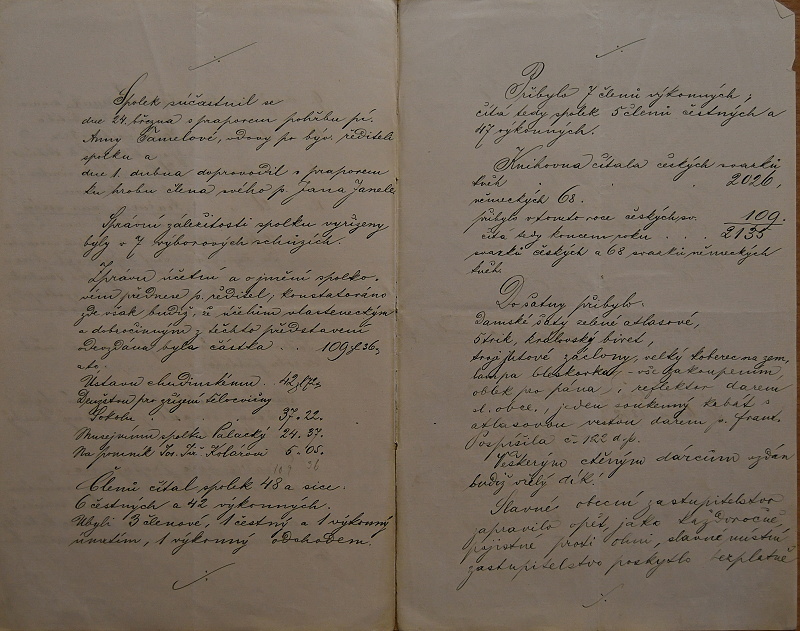 Spolek súčastnil se
dne 24. března s praporem pohřbu pí.
Anny Šamelové, vdovy po býv. řediteli
spolku a
dne 1. dubna doprovodil s praporem
ku hrobu člena svého p. Jana Janele
Správní záležitosti spolku vyřízeny
byly v 7 výborových schůzích.
Zprávu účetní a o jmění spolko-
vém přednese p. ředitel; konstatováno
zde však budiž, že všelikým vlasteneckým
a dobročinným z těchto představení
odevzdána byla částka . . 109 zl 36,
a to:
Ústavu chudinskému . 42 zl 72
Družstvu pro zřízení tělocvičny
Sokolu . . . 37.22.
Musejnímu spolku Palacký 24.37.
Na pomník Jos. Jiř. Kolárovi 5.05.
Členů čítal spolek 48 a sice.
6 čestných a 42 výkonných.
Ubyli 3 členové, 1 čestný a 1 výkonný
úmrtím, 1 výkonný odchodem.
Přibylo 7 členů výkonných;
čítá tedy spolek 5 členů čestných a
47 výkonných.
Knihovna čítala českých svazků
. . . 2026,
německých 68.
přibylo v tomto roce českých sv. 109.
čítá tedy koncem roku . . 2135
svazků českých a 68 svazků německých
Do šatny přibylo:
Damské šaty zelené atlasové,
5 trik, královský biret,
troje jutové záclony, velký koberec na zem,
lampa bleskovka, - vše zakoupením,
oblek pro pána, i reflektor darem
sl. obce, jeden soukenný kabát s
atlasovou vestou darem p. Frant.
Pospíšila č. 122 d. p.
Veškerým ctěným dárcům vzdán
budiž vřelý dík!
Slavné obecní zastupitelstvo
zapravilo opět, jako každoročně
pojistné proti ohni, slavné místní
zastupitelstvo poskytlo bezplatně